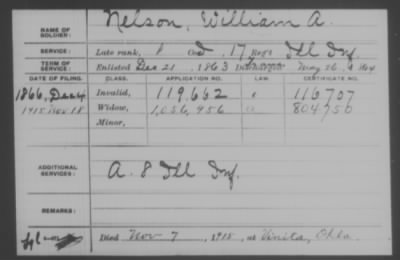 NAME OF SOLDIER: Nelson, William A.
SERVICE: Late rank, P Co. D, 17 Reg't Ill Inf.
TERM OF SERVICE: Enlisted Dec 21, 1863 Discharged May 26, 1864
DATE OF FILING. CLASS. APPLICATION NO. LAW. CERTIFICATE NO.
1866, Dec 4 Invalid, 119,662 116707
1915 Nov 18 Widow, 1,056,956 804756
Minor,
ADDITIONAL SERVICES: A. 8 Ill Inf.
REMARKS:
Died Nov 7, 1915, at Vinita, Okla.